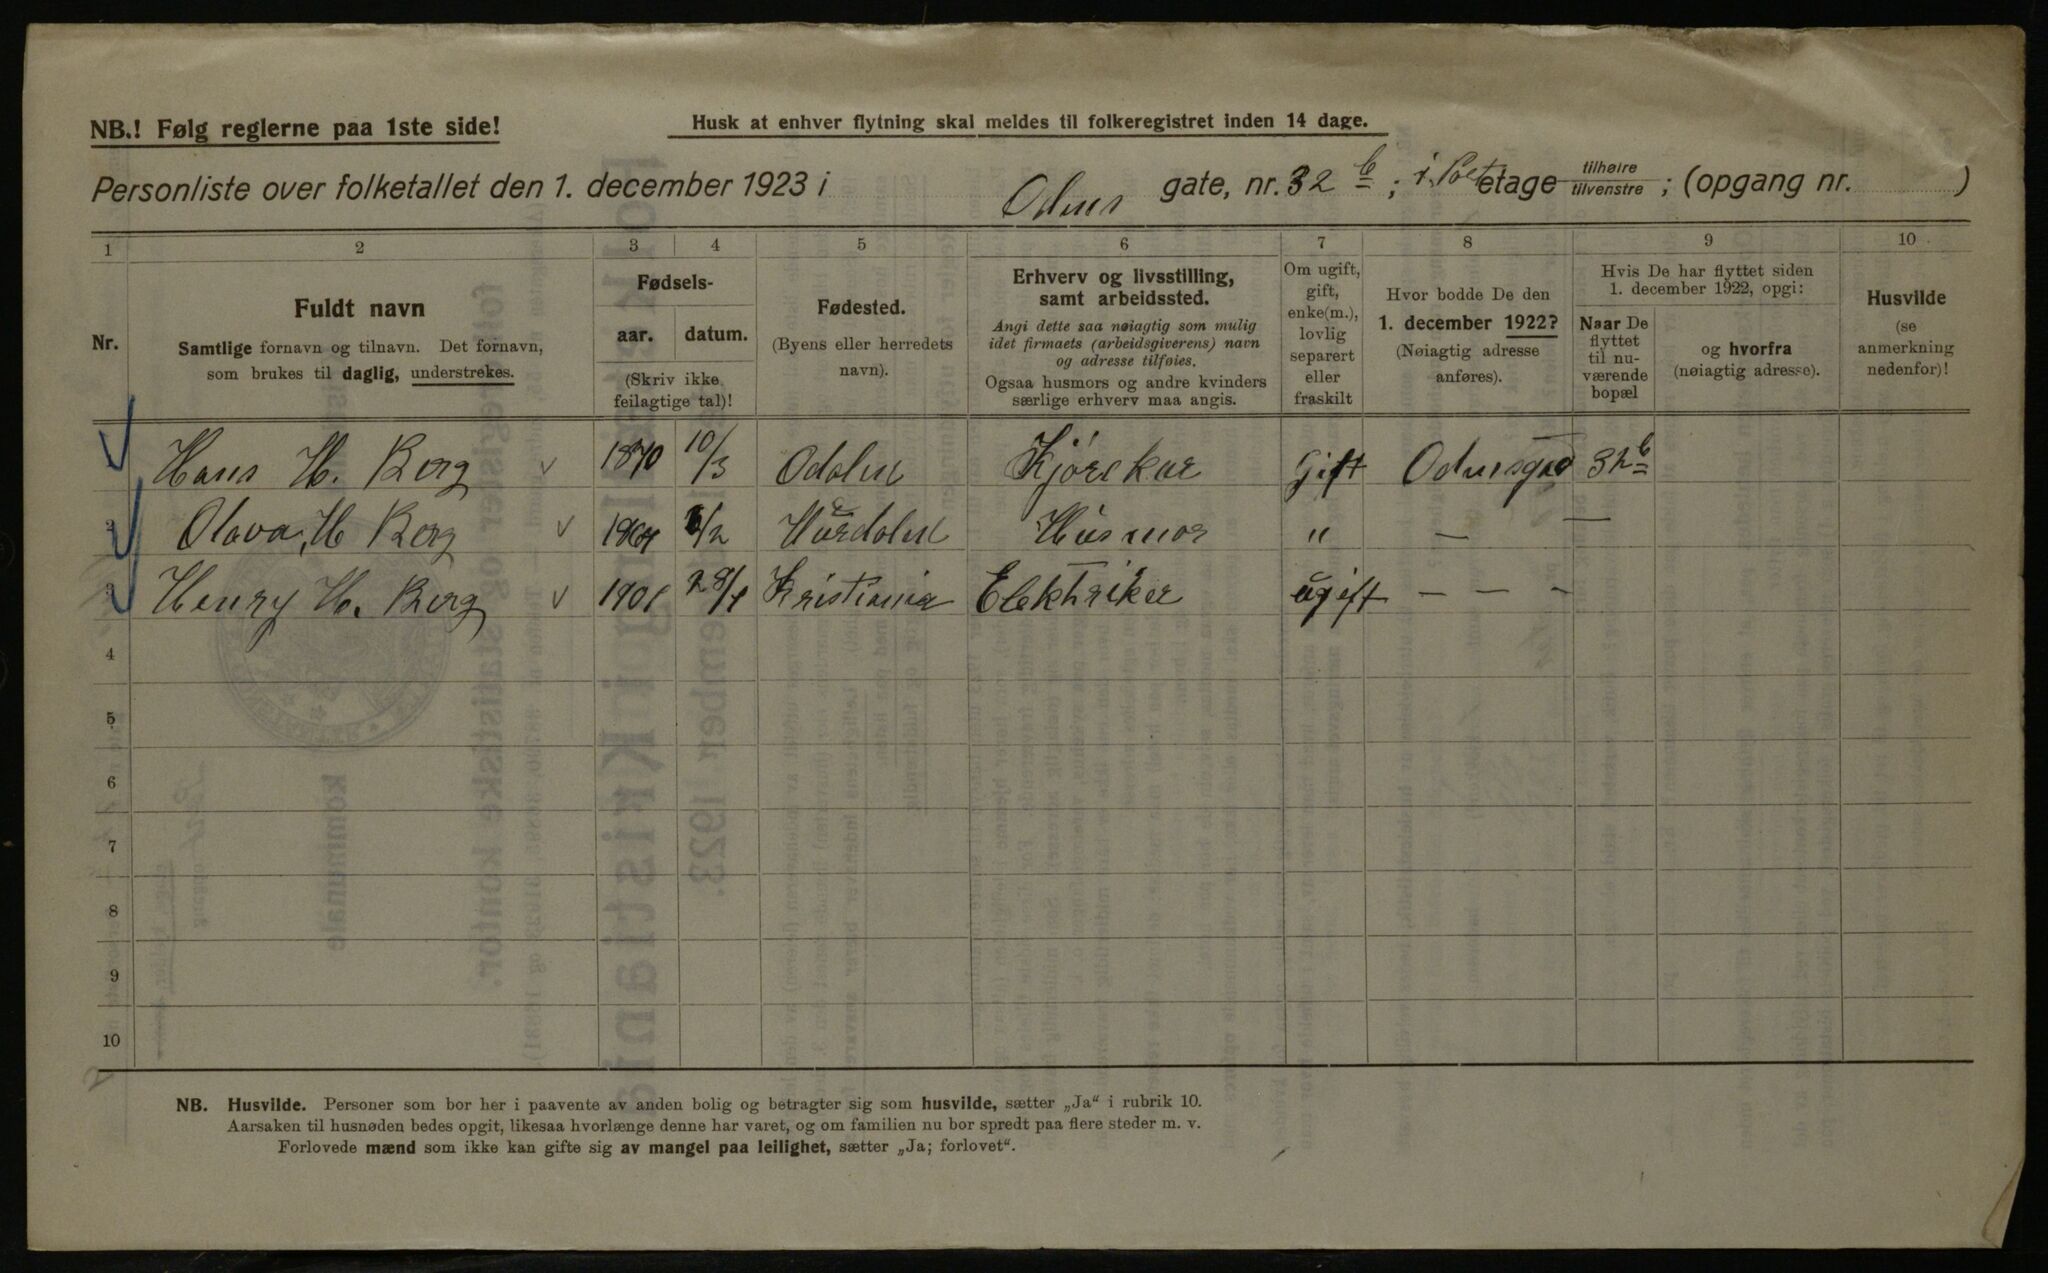 NB.! Følg reglerne paa 1ste side!
Husk at enhver flytning skal meldes til folkeregistret inden 14 dage.
Personliste over folketallet den 1. december 1923 i Odins gate, nr. 32 b ; etage tilhøire tilvenstre ; (opgang nr. )
1 2 3 4 5 6 7 8 9 10
Nr.
Fuldt navn
Samtlige fornavn og tilnavn. Det fornavn,
som brukes til daglig, understrekes.
Fødsels-
aar. datum.
(Skriv ikke
feilagtige tal)!
Fødested.
(Byens eller herredets
navn).
Erhverv og livsstilling,
samt arbeidssted.
Angi dette saa nøiagtig som mulig
idet firmaets (arbeidsgiverens) navn
og adresse tilføies.
Ogsaa husmors og andre kvinders
særlige erhverv maa angis.
Om ugift,
gift,
enke(m.),
lovlig
separert
eller
fraskilt
Hvor bodde De den
1. december 1922?
(Nøiagtig adresse
anføres).
Hvis De har flyttet siden
1. december 1922, opgi:
Naar De
flyttet
til nu-
værende
bopæl
og hvorfra
(nøiagtig adresse).
Husvilde
(se
anmerkning
nedenfor)!
Hans H. Berg 1870 10/3 Odalen Kjørekar Gift Odinsgad 32 b
2 Olava, H Berg /2 Hurdalen Husmor " — —
3 Henry H. Berg 1901 Kristiania Elektriker ugift — — —
4
5
6
7
8
9
10
NB. Husvilde. Personer som bor her i paavente av anden bolig og betragter sig som husvilde, sætter „Ja“ i rubrik 10.
Aarsaken til husnøden bedes opgit, likesaa hvorlænge denne har varet, og om familien nu bor spredt paa flere steder m. v.
Forlovede mænd som ikke kan gifte sig av mangel paa leilighet, sætter „Ja; forlovet“.